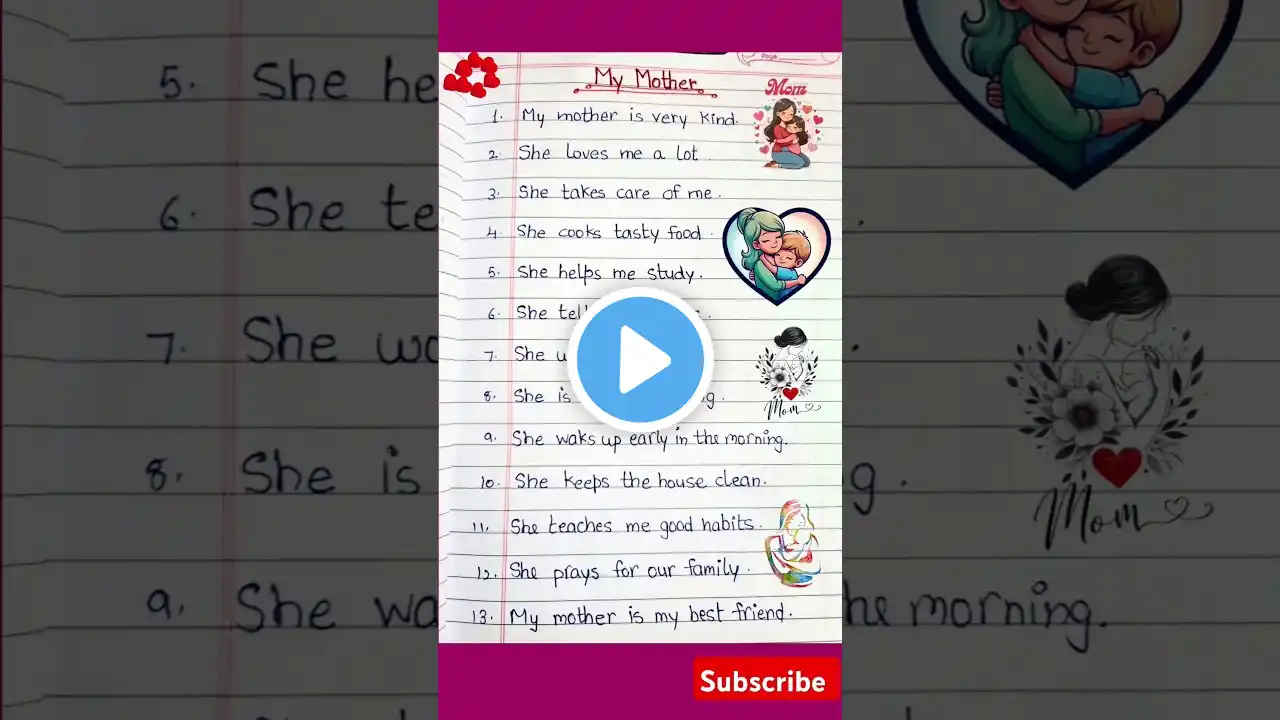 Page
My Mother
Mom
1. My mother is very kind.
2. She loves me a lot.
3. She takes care of me.
4. She cooks tasty food.
5. She helps me study.
6. She
7. She
8. She is
Mom
9. She waks up early in the morning.
10. She keeps the house clean.
11. She teaches me good habits.
12. She prays for our family.
13. My mother is my best friend.
Subscribe
5. She
6. She
7. She
8. She is
Mom
9. She
the morning.